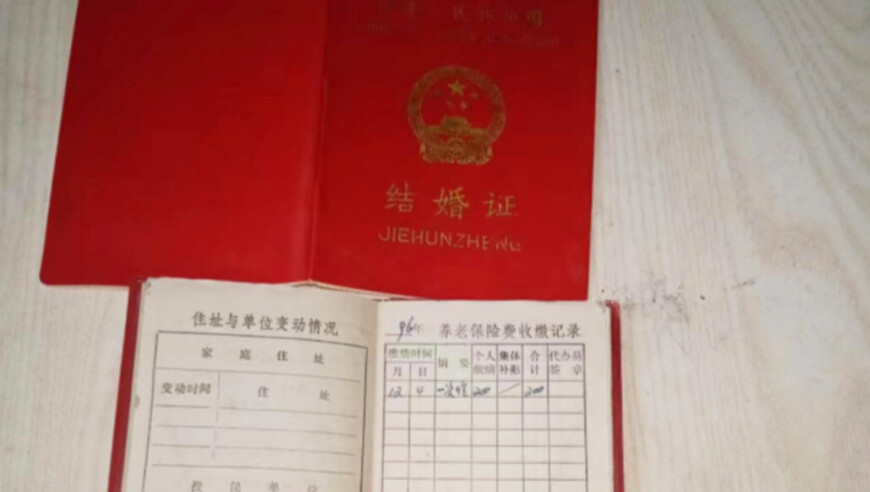 结婚证
JIEHUNZHENG
住址与单位变动情况
家庭住址
变动时间 住址
投保单位
96年 养老保险费收缴记录
缴费时间 摘要 个人缴纳 集体补贴 合计 代办员签章
月 日
12 4 一次性 200 200